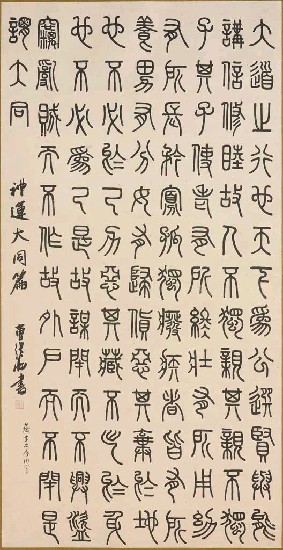 大道之行也天下為公選賢與能
講信修睦故人不獨親其親不獨
子其子使老有所終壯有所用幼
有所長矜寡孤獨癈疾者皆有所
養男有分女有歸貨惡其棄於地
也不必於己力惡其藏不出於身
也不必為己是故謀閉而不興盜
竊亂賊而不作故外戶而不閉是
謂大同
禮運大同篇